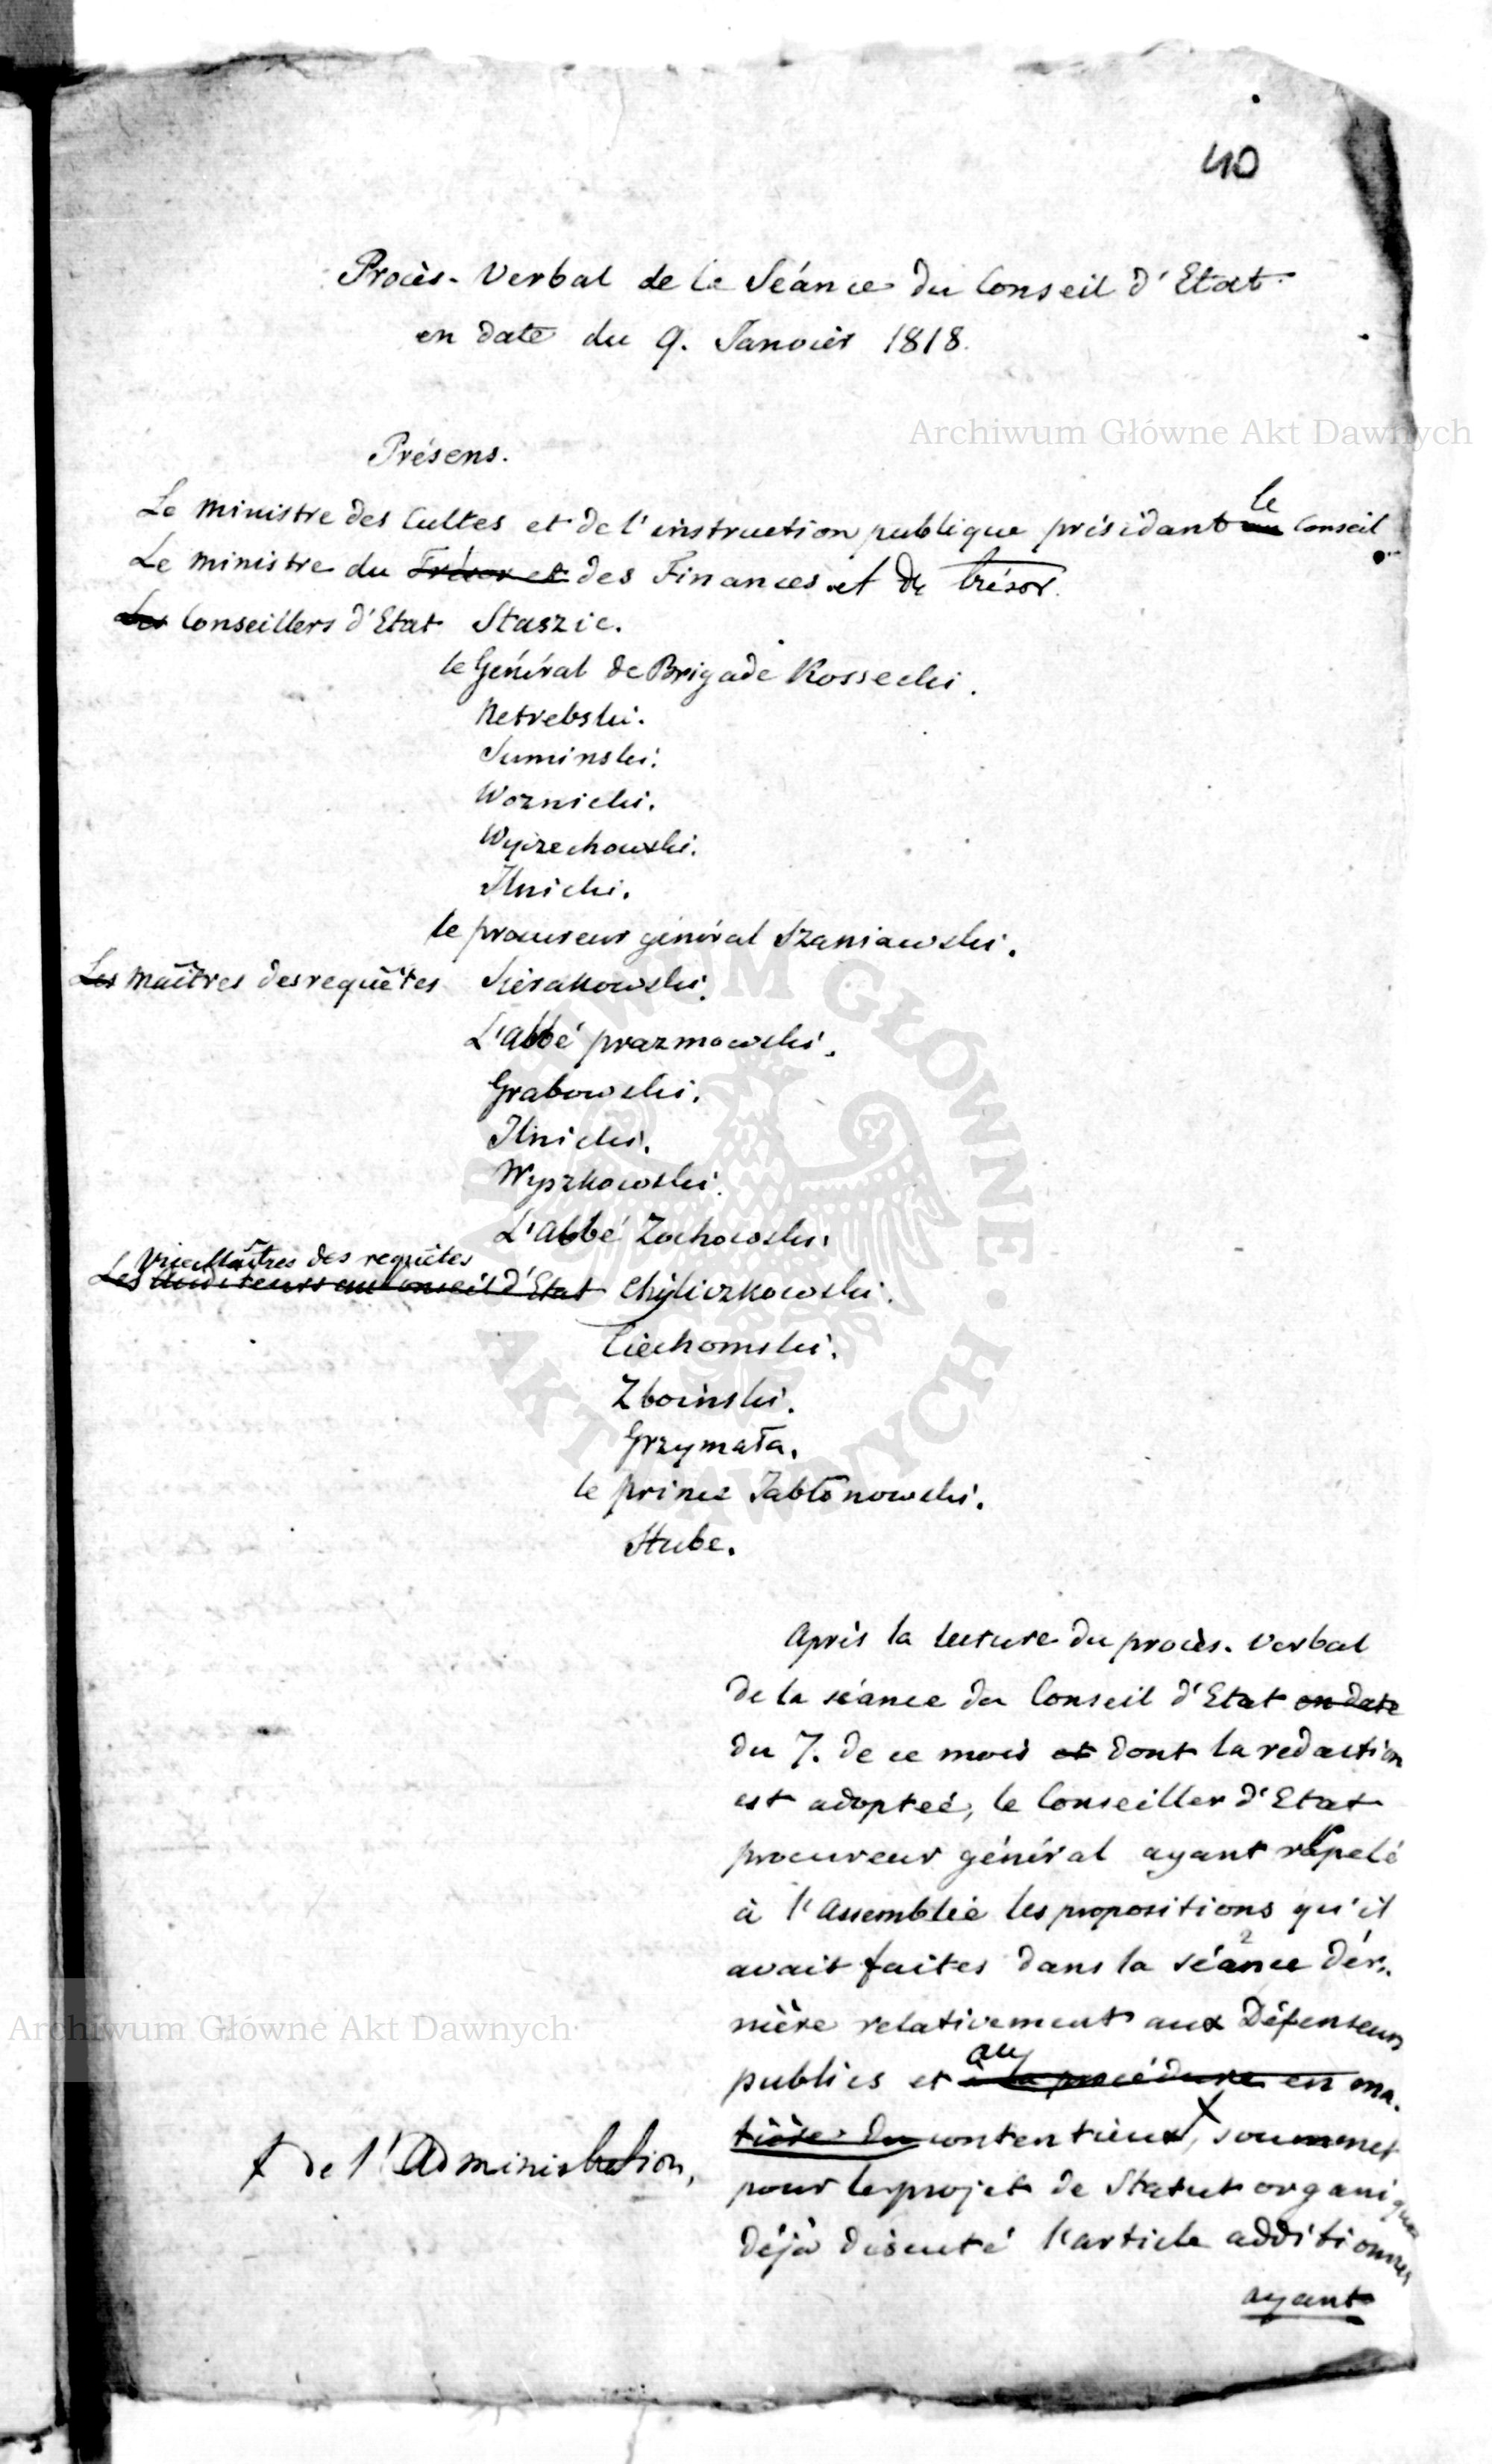 40
Procès-Verbal de la Séance du Conseil d'Etat
en date du 9. Janvier 1818.
Archiwum Główne Akt Dawnych
Présens.
Le ministre des Cultes et de l'instruction publique présidant au le Conseil
Le ministre du Trésor et des Finances et du trésor.
Les Conseillers d'Etat Staszic.
le Général de Brigade Kossecki.
Netrebski.
Suminski.
Woznicki.
Wyczechowski.
Ilnicki.
le procureur général Szaniawski.
Les maîtres des requêtes Sierakowski.
L'abbé prazmowski.
Grabowski.
Ilnicki.
Wyszkowski.
L'abbé Zochowski.
Vice Maîtres des requêtes
Les Auditeurs au Conseil d'Etat Chyliczkowski.
Ciechomski.
Zboinski.
Grzymała.
le prince Jabłonowski.
Stube.
ARCHIWUM GŁÓWNE AKT DAWNYCH
Après la lecture du procès-verbal
de la séance du Conseil d'Etat en date
du 7. de ce mois et dont la redaction
est adopteé, le Conseiller d'Etat
procureur général ayant rappelé
à l'Assemblée les propositions qu'il
avait faites dans la séance der-
nière relativement aux Défenseurs
Archiwum Główne Akt Dawnych
publics et à la procédure en ma-
au
tière du contentieux, soummet
+ de l'Administration,
pour le projet de Statut organique
déjà discuté l'article additionnel
ayant